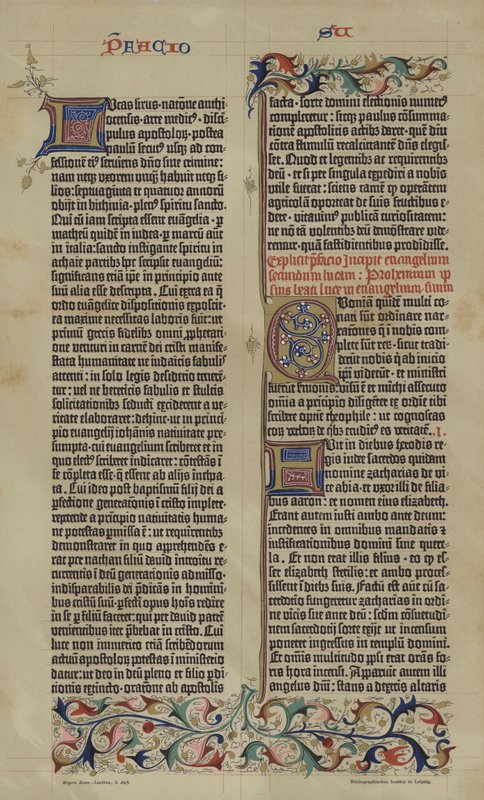 P̄FACIO
SU
Lucas sirus · natōne anthi-
ocensis · arte medicꝰ · disci-
pulus apostoloꝝ · postea
paulū secutꝰ usqꝫ ad con-
fessionē eiꝰ serviens dn̄o sine crimine:
nam neqꝫ vxorem vnqꝫ habuit neqꝫ fi-
lios: septuaginta et quatuor annorū
obijt in bithinia · plenꝰ spiritu sancto.
Qui cū iam scripta essent euāgelia · ꝑ
matheū quidē in iudea · ꝑ marcū aūt
in italia: sancto instigante spiritu in
achaie partibꝫ hoc scripsit euangeliū:
significans etiā ip̄e in principio ante
suū alia esse descripta. Cui extra ea q̄
ordo euāgelice dispositionis exposcit ·
ea maxime necessitas laboris fuit: ut
primū grecis fidelibꝫ omni ꝓphetati-
one venturi in carnē dei cristi manife-
stata humanitate ne iudaicis fabulis
attenti: in solo legis desiderio tenerē-
tur: vel ne hereticis fabulis et stultis
solicitationibꝫ seducti exciderent a ve-
ritate elaboraret: dehinc · ut in princi-
pio euangelij iohānis natiuitate pre-
sumpta · cui euangelium scriberet et in
quo electꝰ scriberet indicaret: cōtestās ī
se cōpleta esse · q̄ essent ab alijs inchoa-
ta. Cui ideo post baptismū filij dei a
ꝑfectione generatōnis ī cristo implete ·
repetende a principio natiuitatis huma-
ne potestas ꝑmissa ē: ut requirentibꝫ
demonstraret in quo apprehendēs e-
rat per nathan filiū dauid introitu re-
currentis ī deū generationis admisso ·
indisparabilis dei p̄dicās in homini-
bus cristū suū · ꝑfecti opus hoīs redire
in se ꝑ filiū faceret: qui per dauid patrē
venientibus iter p̄bebat in cristo. Cui
luce non immerito etiā scribēdorum
actuū apostoloꝝ potestas ī ministerio
datur: ut deo in deū pleno et filio ꝓdi-
tionis extincto · oratōne ab apostolis
facta · sorte domini electionis numerꝰ
completetur: sicqꝫ paulus cōsumma-
tionē apostolicis actibꝫ daret · quē diu
cōtra stimulū recalcitrantē dn̄s elegis-
set. Quod et legentibꝫ ac requirentibꝫ
deū · et si per singula expediri a nobis
vtile fuerat: sciens tamē qꝫ operātem
agricolā oporteat de suis fructibus e-
dere · vitauimꝰ publicā curiositatem:
ne nō tā volentibꝫ deū demōstrare vide-
remur · quā fastidientibus prodidisse.
Explicit p̄facio Incipit euangelium
secundum lucam: Prohemium ip-
sius beati luce in euangelium suum
Quoniā quidē multi co-
nati sūt ordinare nar-
rationes q̄ ī nobis com-
plete sūt reꝝ · sicut tradi-
derūt nobis q̄ ab inicio
ip̄i viderūt · et ministri
fuerūt sermonis: visū ē et michi assecuto
omīa a principio diligēter ex ordīe tibi
scribere optīe theophile: ut cognoscas
eoꝝ verboꝝ de qͥbꝫ eruditꝰ es veritatē. I.
Fuit in diebus herodis re-
gis iude sacerdos quidam
nomine zacharias de vi-
ce abia · et vxor illi de filia-
bus aaron: et nomen eius elizabeth.
Erant autem iusti ambo ante deum:
incedentes in omnibus mandatis et
iustificationibus domini sine quere-
la. Et non erat illis filius · eo qꝫ es-
set elizabeth sterilis: et ambo proces-
sissent ī diebꝫ suis. Factū est aūt cū sa-
cerdotio fungeretur zacharias in ordi-
ne vicis sue ante deū: scdm̄ cōsuetudi-
nem sacerdotij sorte exijt ut incensum
poneret ingressus in templū domini.
Et om̄is multitudo ppl̄i erat orās fo-
ris hora incensi. Apparuit autem illi
angelus dn̄i: stans a dextris altaris
Meyers Konv.-Lexikon, 5. Aufl.
Bibliographisches Institut in Leipzig.